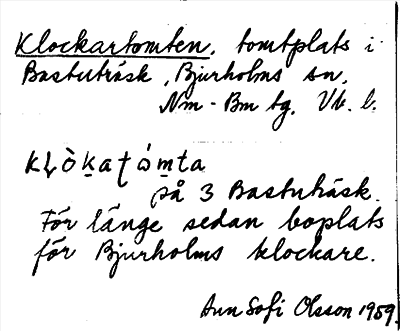 Klockartomten, tomtplats i
Bastuträsk, Bjurholms sn,
Nm - Bm tg. Vb. l.
på 3 Bastuträsk.
För länge sedan boplats
för Bjurholms klockare.
Ann Sofi Olsson 1959.